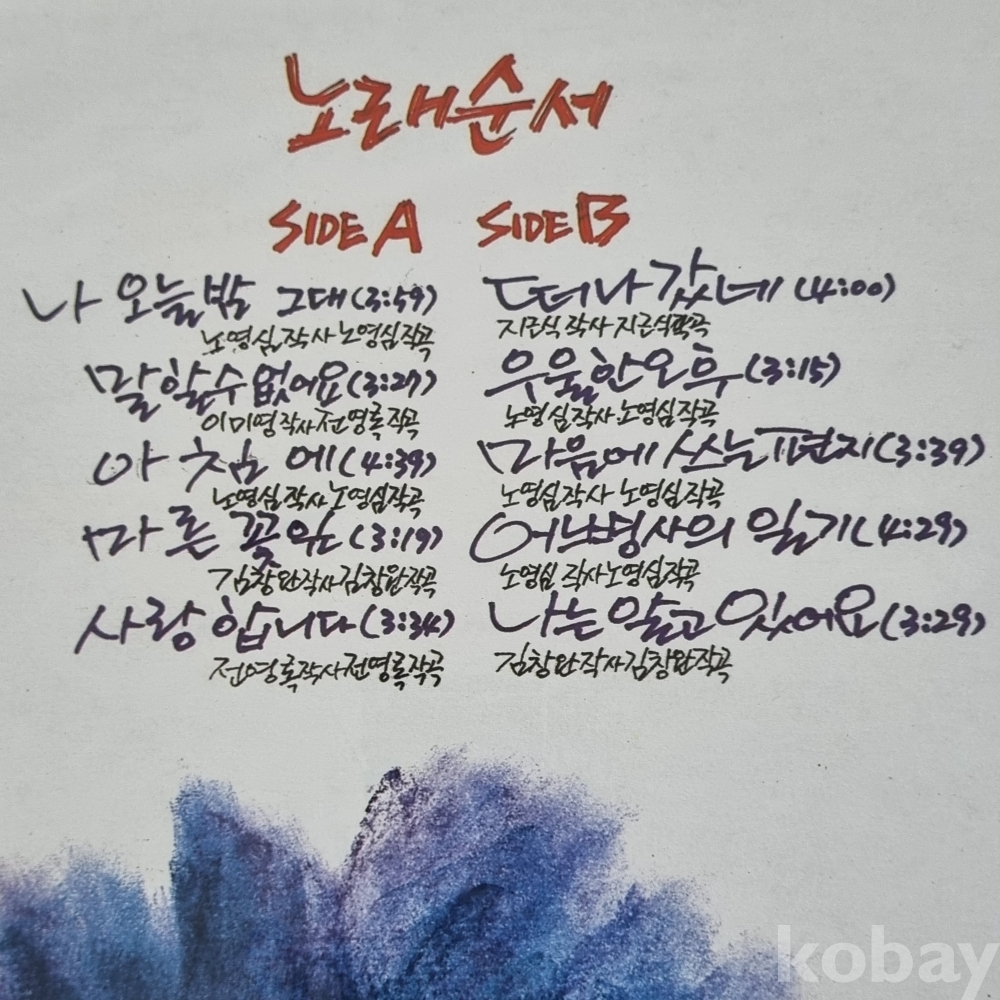 노래순서
SIDE A
나 오늘밤 그대 (3:59)
노영심 작사 노영심 작곡
말할수없어요 (3:27)
이미영 작사 전영록 작곡
아침에 (4:39)
노영심 작사 노영심 작곡
마른 꽃잎 (3:19)
김창완 작사 김창완 작곡
사랑합니다 (3:34)
전영록 작사 전영록 작곡
SIDE B
떠나갔네 (4:00)
지근식 작사 지근식 작곡
우울한오후 (3:15)
노영심 작사 노영심 작곡
마음에 쓰는 편지 (3:39)
노영심 작사 노영심 작곡
어느병사의 일기 (4:29)
노영심 작사 노영심 작곡
나는 알고 있어요 (3:29)
김창완 작사 김창완 작곡
kobay